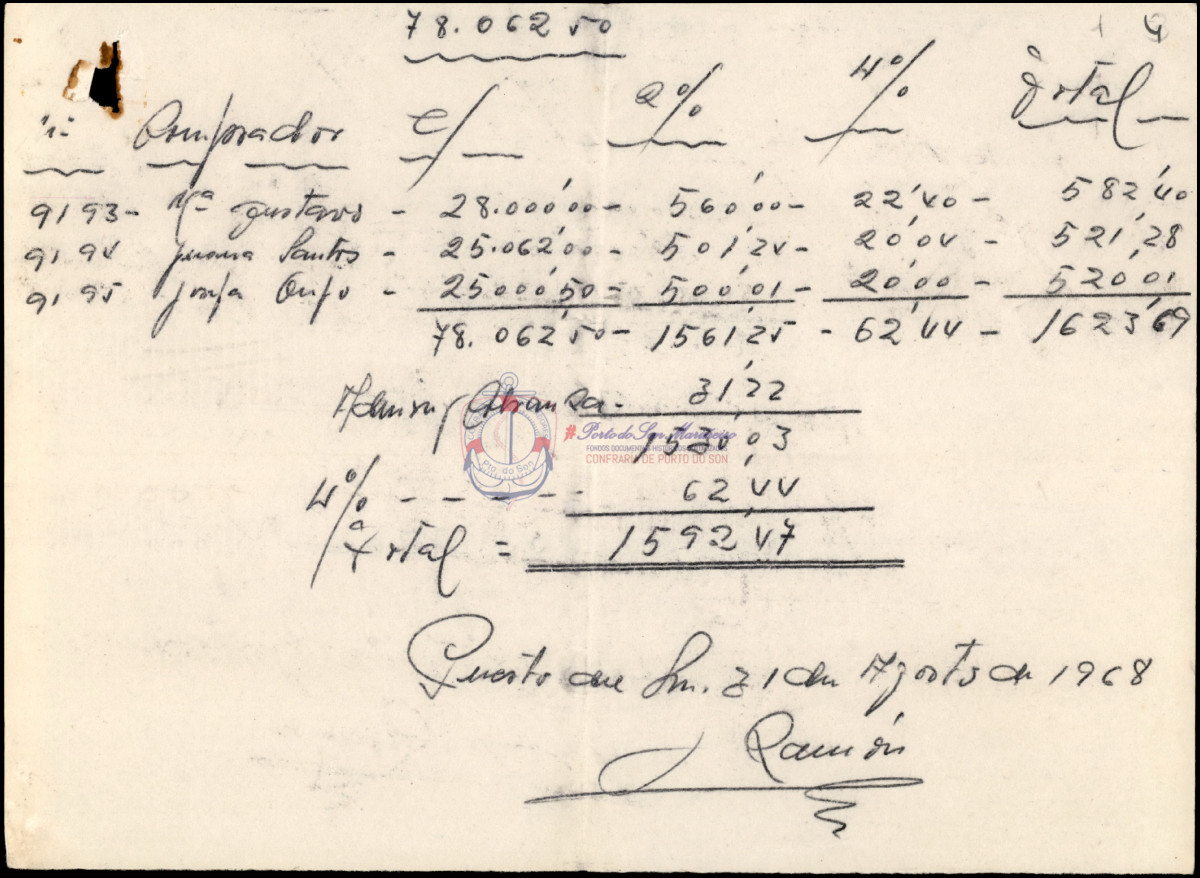 78.062'50
Nº Comprador C/ 2% 4% Total
9193- Mª Gustavo - 28.000'00- 560'00- 22'40- 582'40
9194 Juana Santos - 25.062'00- 501'24- 20'04- 521'28
9195 - 25000'50= 500'01- 20'00- 520'01
78.062'50- 1561'25- 62'44- 1623'69
31'22
#Porto do Son Mariñeiro
1530'03
CONFRARÍA DE PORTO DO SON
Pto. do Son
4% - - - - - - 62'44
Total = 1592'47
Puerto de Son. 31 de Agosto de 1968
Ramón